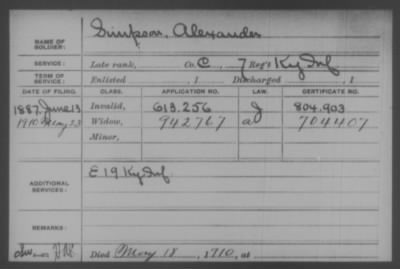 NAME OF SOLDIER: Simpson, Alexander
SERVICE: Late rank, Co. C, 7 Reg't Ky Inf
TERM OF SERVICE: Enlisted , 1 Discharged , 1
DATE OF FILING. CLASS. APPLICATION NO. LAW. CERTIFICATE NO.
1887, June 13 Invalid, 613.256 J 804.903
1910 May 23 Widow, 942767 a 704407
Minor,
ADDITIONAL SERVICES: E 19 Ky Inf.
REMARKS:
Died May 18, 1910, at